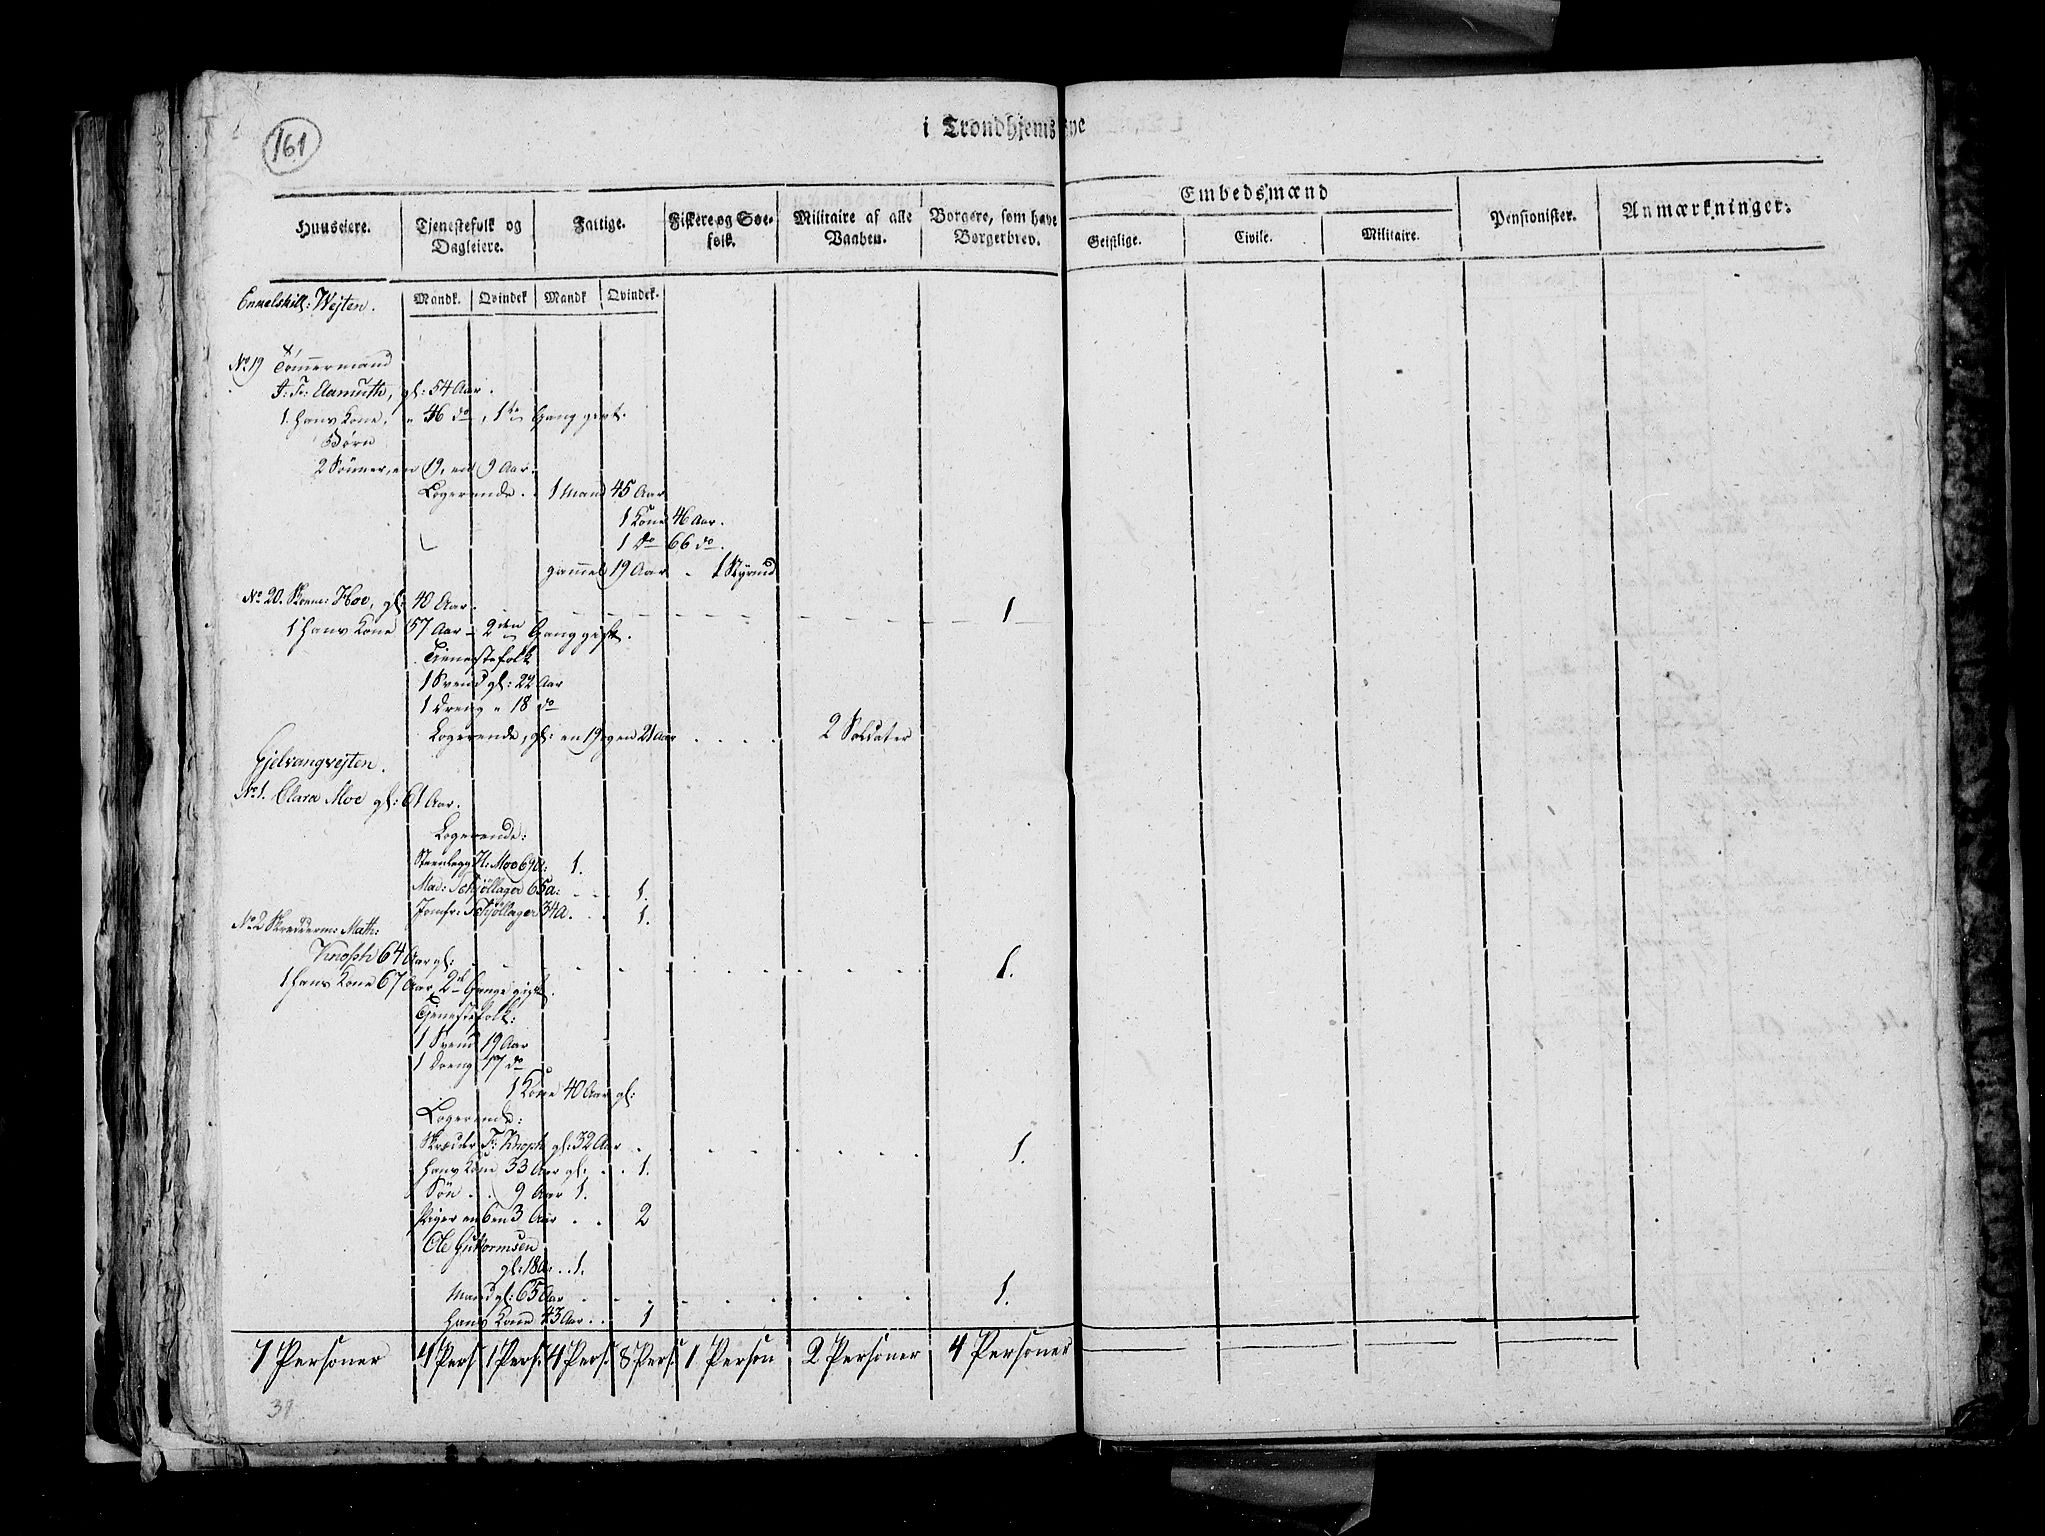 161
i Trondhjems Bye
Embedsmænd
Huuseiere. Tjenestefolk og Dagleiere. Fattige. Fiskere og Søefolk. Militaire af alle Vaaben. Borgere, som have Borgerbrev. Geistlige. Civile. Militaire. Pensionister. Anmærkninger.
Mandk. Qvindek. Mandk Qvindek.
Enkelskill: Wejten.
No 19 Tømmermand
gl: 54 Aar.
1. Hans Kone, " 46 do, 1te Gang givt.
Børn
2 Sønner, en 19, en 9 Aar.
Logerende . . 1 Mand 45 Aar
1 Kone 46 Aar.
1 do 66 do.
gammel 19 Aar . 1
No 20. Skoem: Hoe, gl: 40 Aar. 1
1 Hans Kone 57 Aar - 2den Gang gift.
Tienestefolk
1 Svend gl: 22 Aar
1 Dreng " 18 do
Logerende, gl: en 19 og en 21 Aar . . . . 2 Soldater
Gjelvangvejten.
No 1. Clara Moe gl: 61 Aar.
Logerende:
H: Moe 69 a: 1.
Mad: Schjøllager 65 a: . . 1.
Jomfr: Schjøllager 34 a. . . 1.
No 2 Skredderm: Math:
Knoph 64 Aar gl: 1.
1 Hans Kone 67 Aar, 2de Gange gift.
Tjenestefolk:
1 Svend 19 Aar
1 Dreng 17 do
1 Kone 40 Aar gl:
Logerende:
Skræder F: Knoph gl: 32 Aar 1.
Hans Kone 33 Aar gl: . . 1.
Søn . . 9 Aar 1.
Piger en 6 en 3 Aar . . 2
Ole Guttormsen
gl: 18 a. . . 1.
Mand gl: 65 Aar 1.
Hans Kone 43 Aar . . 1
7 Personer 4 Pers 1 Pers: 4 Pers: 8 Pers: 1 Person 2 Personer 4 Personer